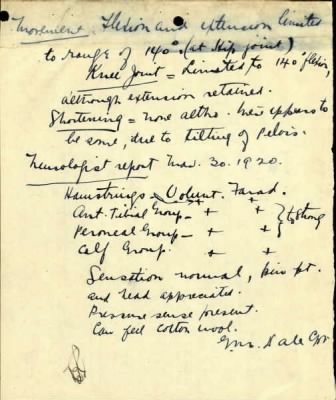 Movement. Flexion and extension limited
to range of 140° (at Hip joint)
Knee Joint = Limited to 140° flexion
although extension retained.
Shortening = none altho. there appears to
be some, due to tilting of pelvis.
Neurologist report Mar. 30. 1920.
Hamstrings - Volunt. Farad.
Ant. Tibial Group - + +
Peroneal Group - + + } strong
Calf Group. + +
Sensation normal, pin pt.
and head appreciated.
Pressure sense present.
Can feel cotton wool.
Dale